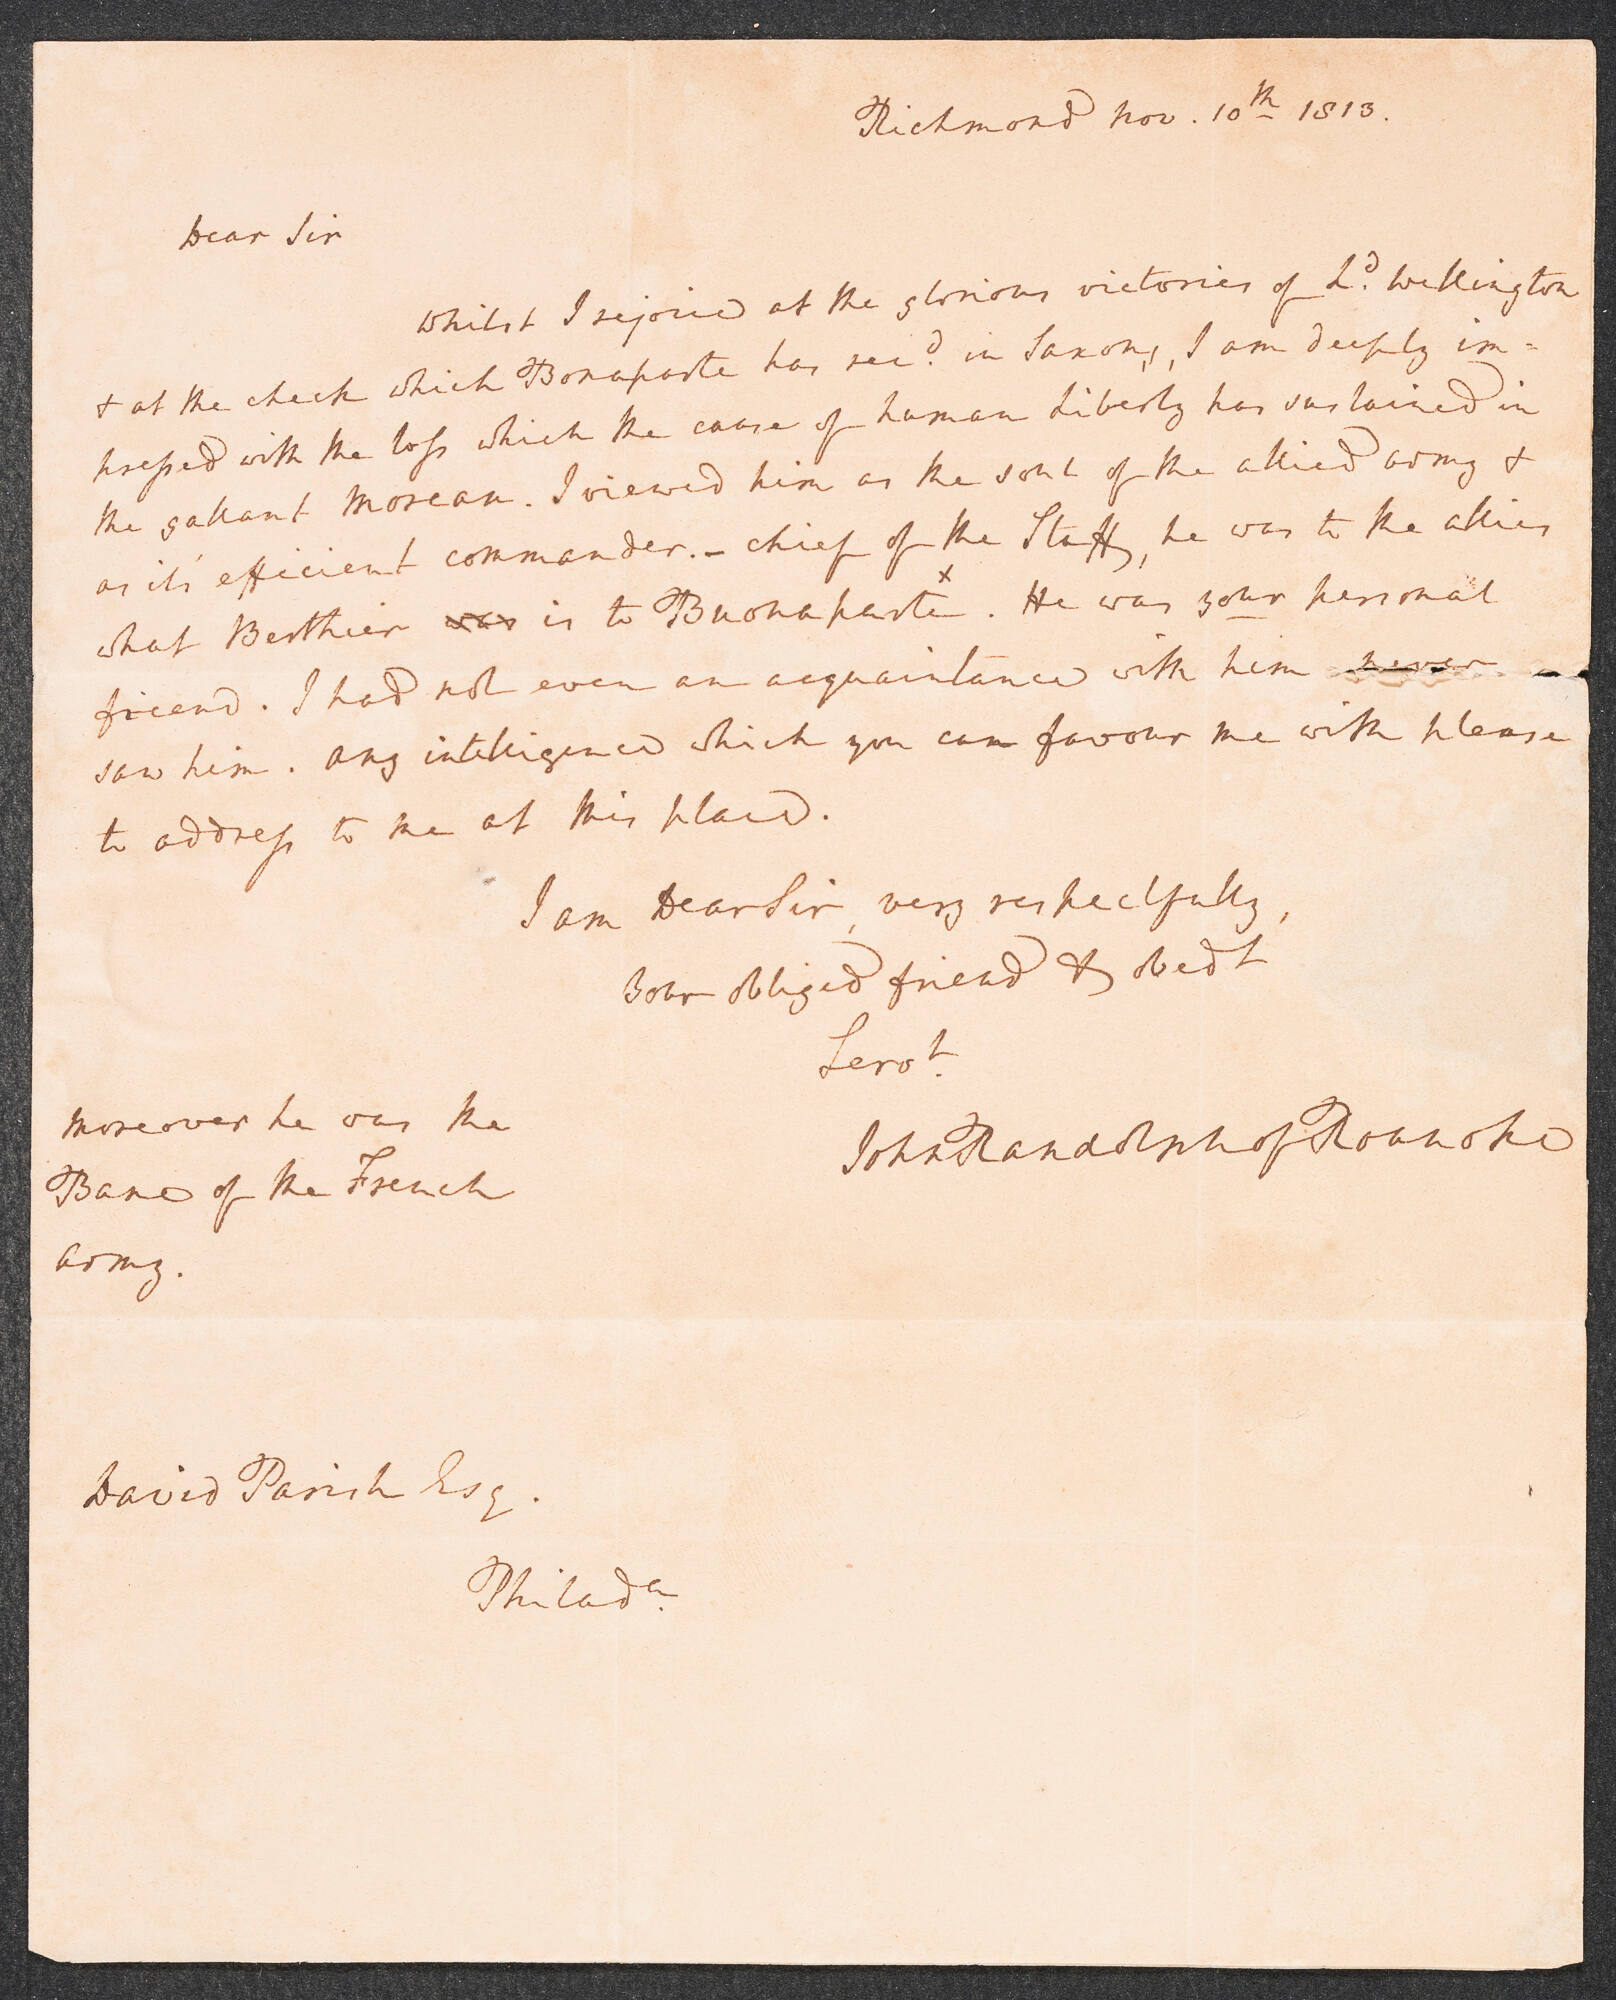 Richmond Nov. 10th 1813.
Dear Sir
Whilst I rejoice at the glorious victories of Ld. Wellington
& at the check which Bonaparte has recd. in Saxony, I am deeply im=
pressed with the loss which the cause of human Liberty has sustained in
the gallant Moreau. I viewed him as the soul of the allied army &
as it's efficient commander. – chief of the Staff, he was to the allies
what Berthier was is to Buonaparte x. He was your personal
friend. I had not even an acquaintance with him never
saw him. Any intelligence which you can favour me with please
to address to me at this place.
I am Dear Sir, very respectfully,
Your obliged friend & obedt
Servt.
John Randolph of Roanoke
Moreover he was the
Bane of the French
army.
David Parish Esq.
Philada.